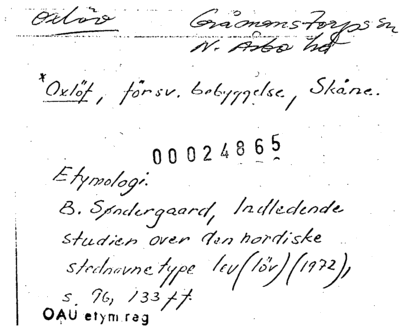 Oxlöv Gråmanstorps sn
N. Åsbo hd
*Oxlöf, försv. bebyggelse, Skåne.
00024865
Etymologi.
B. Søndergaard, Indledende
studier over den nordiske
stednavnetype lev (löv) (1972),
s. 96, 133 ff.
OAU etym.reg